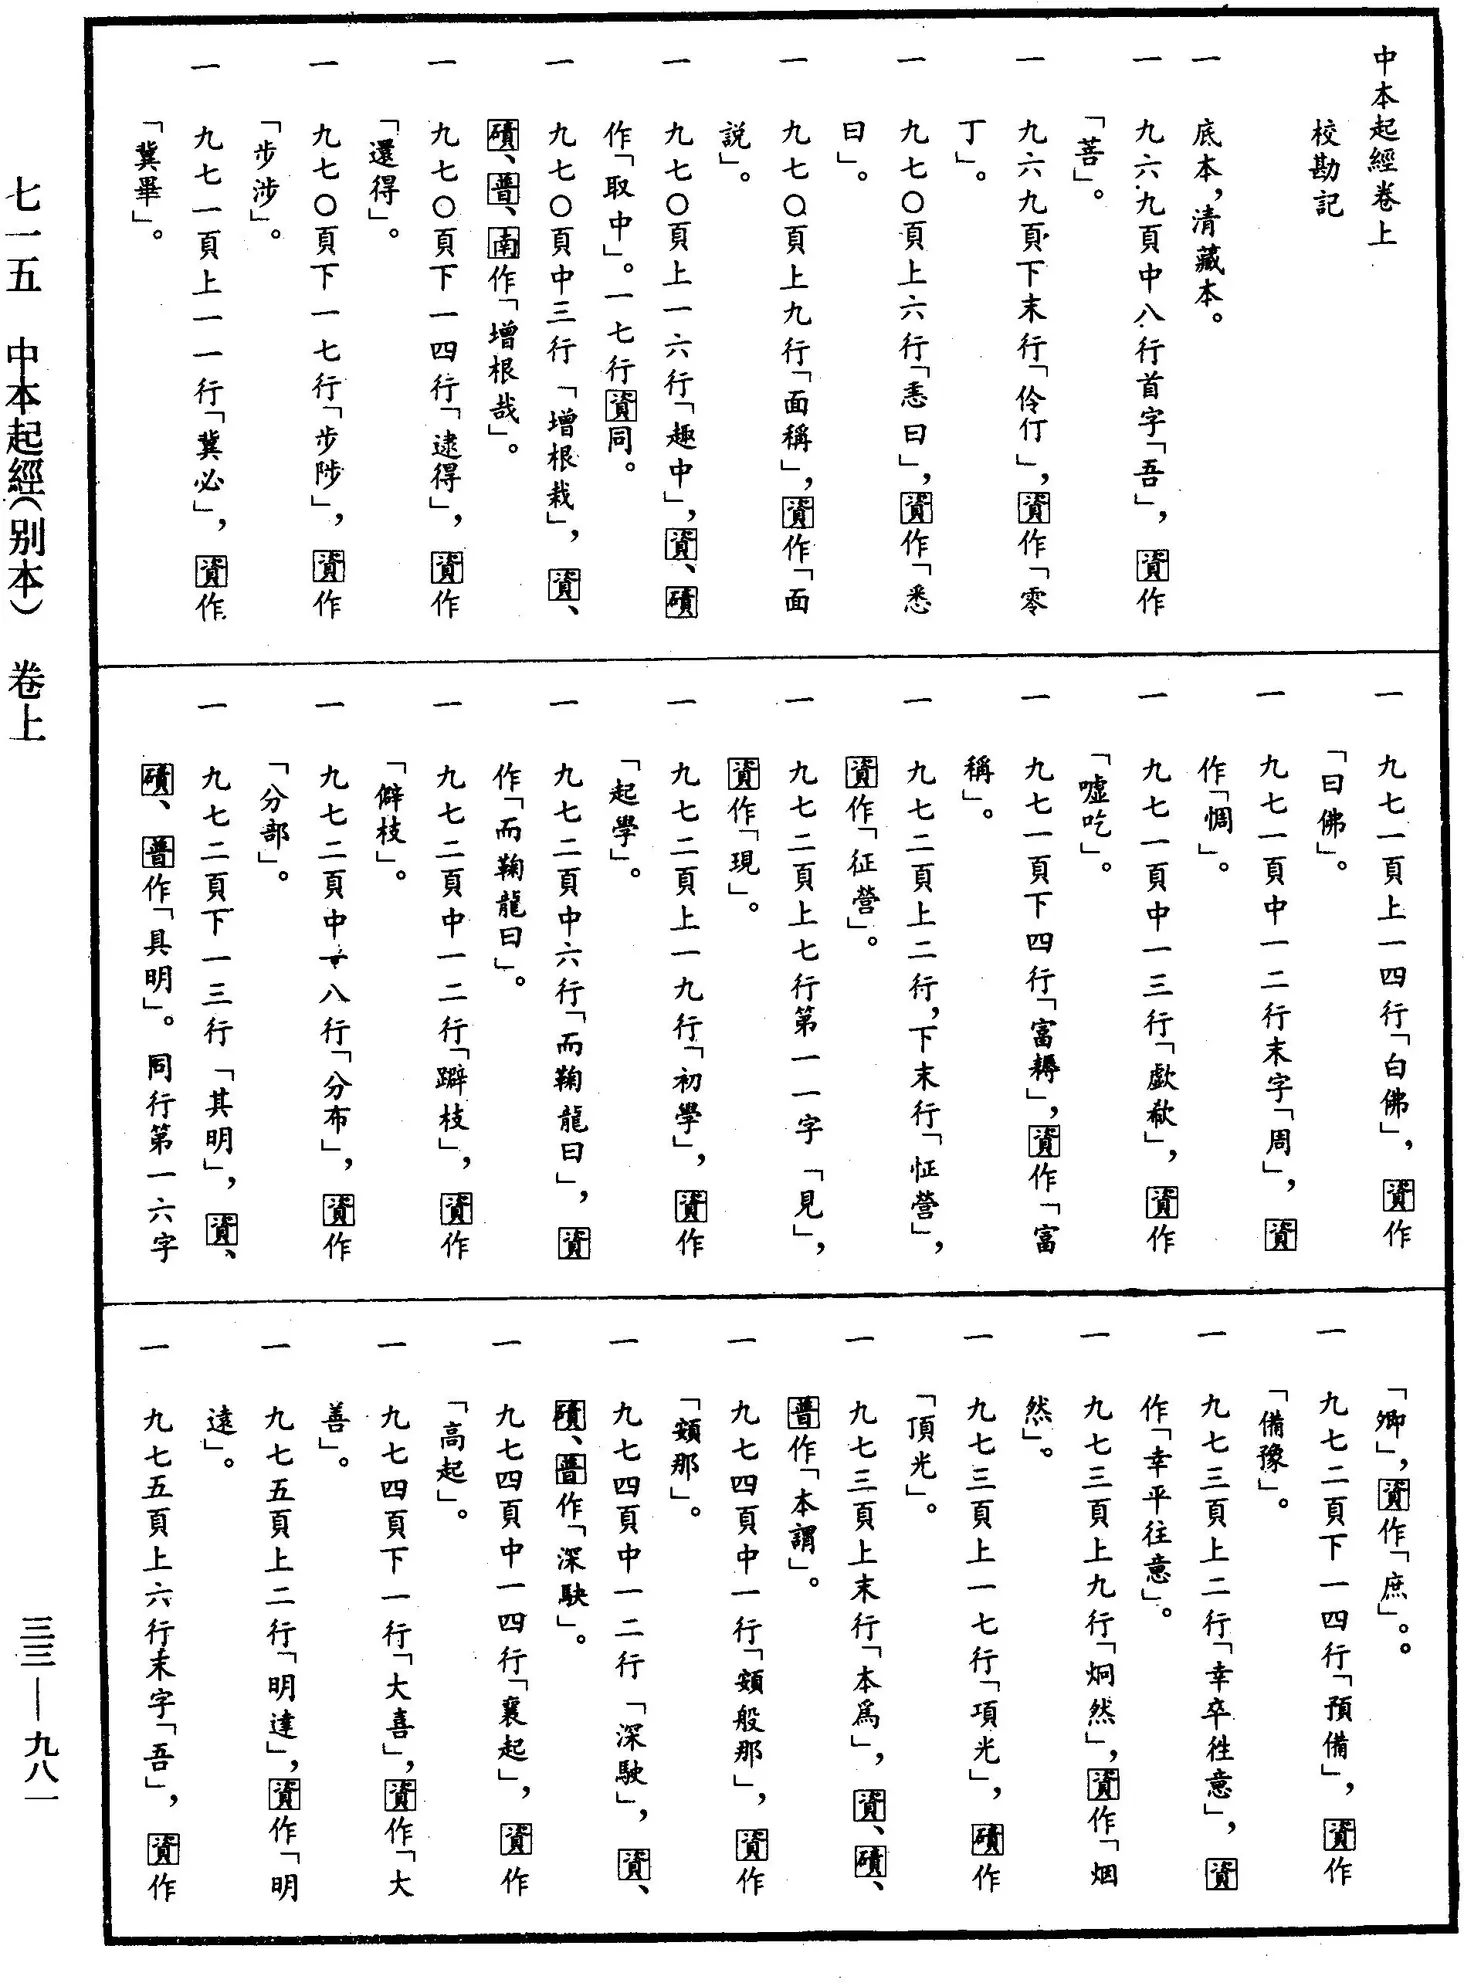 中本起經卷上
校勘記
一　底本，清藏本。
一　九六九頁中八行首字「吾」，資作
「菩」。
一　九六九頁下末行「伶仃」，資作「零
丁」。
一　九七〇頁上六行「恚曰」，資作「悉
曰」。
一　九七〇頁上九行「面稱」，資作「面
説」。
一　九七〇頁上一六行「趣中」，資、磧
作「取中」。一七行資同。
一　九七〇頁中三行「增根栽」，資、
磧、普、南作「增根哉」。
一　九七〇頁下一四行「逮得」，資作
「還得」。
一　九七〇頁下一七行「步陟」，資作
「步涉」。
一　九七一頁上一一行「冀必」，資作
「冀畢」。
一　九七一頁上一四行「白佛」，資作
「曰佛」。
一　九七一頁中一二行末字「周」，資
作「惆」。
一　九七一頁中一三行「歔欷」，資作
「噓吃」。
一　九七一頁下四行「富耨」，資作「富
稱」。
一　九七二頁上二行，下末行「怔營」，
資作「征營」。
一　九七二頁上七行第一一字「見」，
資作「現」。
一　九七二頁上一九行「初學」，資作
「起學」。
一　九七二頁中六行「而鞠龍曰」，資
作「而鞠龍曰」。
一　九七二頁中一二行「躃枝」，資作
「僻枝」。
一　九七二頁中一八行「分布」，資作
「分部」。
一　九七二頁下一三行「其明」，資、
磧、普作「具明」。同行第一六字
「卿」，資作「庶」。。
一　九七二頁下一四行「預備」，資作
「備豫」。
一　九七三頁上二行「幸卒徃意」，資
作「幸平往意」。
一　九七三頁上九行「炯然」，資作「烟
然」。
一　九七三頁上一七行「項光」，磧作
「頂光」。
一　九七三頁上末行「本爲」，資、磧、
普作「本謂」。
一　九七四頁中一行「頞般那」，資作
「頞那」。
一　九七四頁中一二行「深駛」，資、
磧、普作「深駃」。
一　九七四頁中一四行「襄起」，資作
「高起」。
一　九七四頁下一行「大喜」，資作「大
善」。
一　九七五頁上二行「明達」，資作「明
遠」。
一　九七五頁上六行末字「吾」，資作
七一五　中本起經（别本）　卷上
三三—九八一